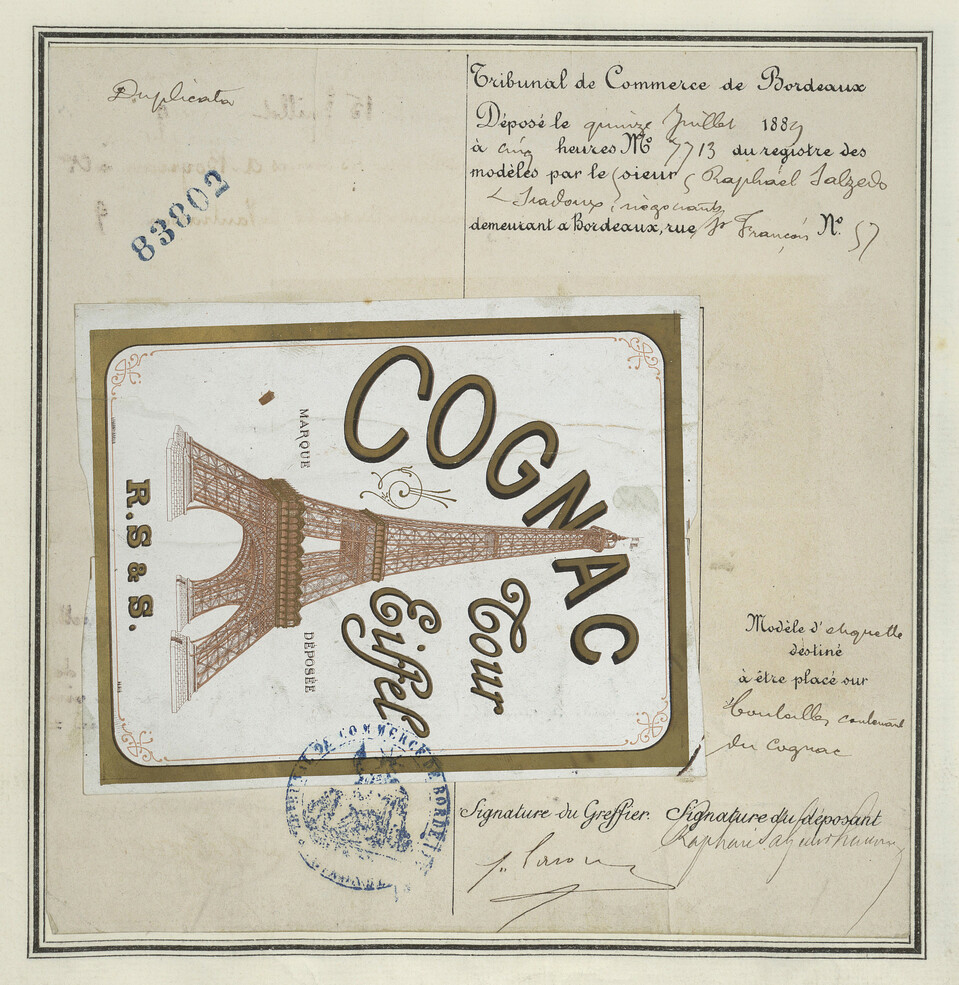 Duplicata
83802
Tribunal de Commerce de Bordeaux
Déposé le quinze Juillet 1889
à cinq heures No 7713 du registre des
modèles par le sieur Raphaël Salzedo
négociants
demeurant a Bordeaux, rue St François No. 57
COGNAC
Tour
Eiffel
MARQUE DÉPOSÉE
R.S & S.
Modèle d'etiquette
destiné
à être placé sur
bouteilles contenant
du Cognac
DE COMMERCE DE BORDE
Signature du Greffier. Signature du déposant